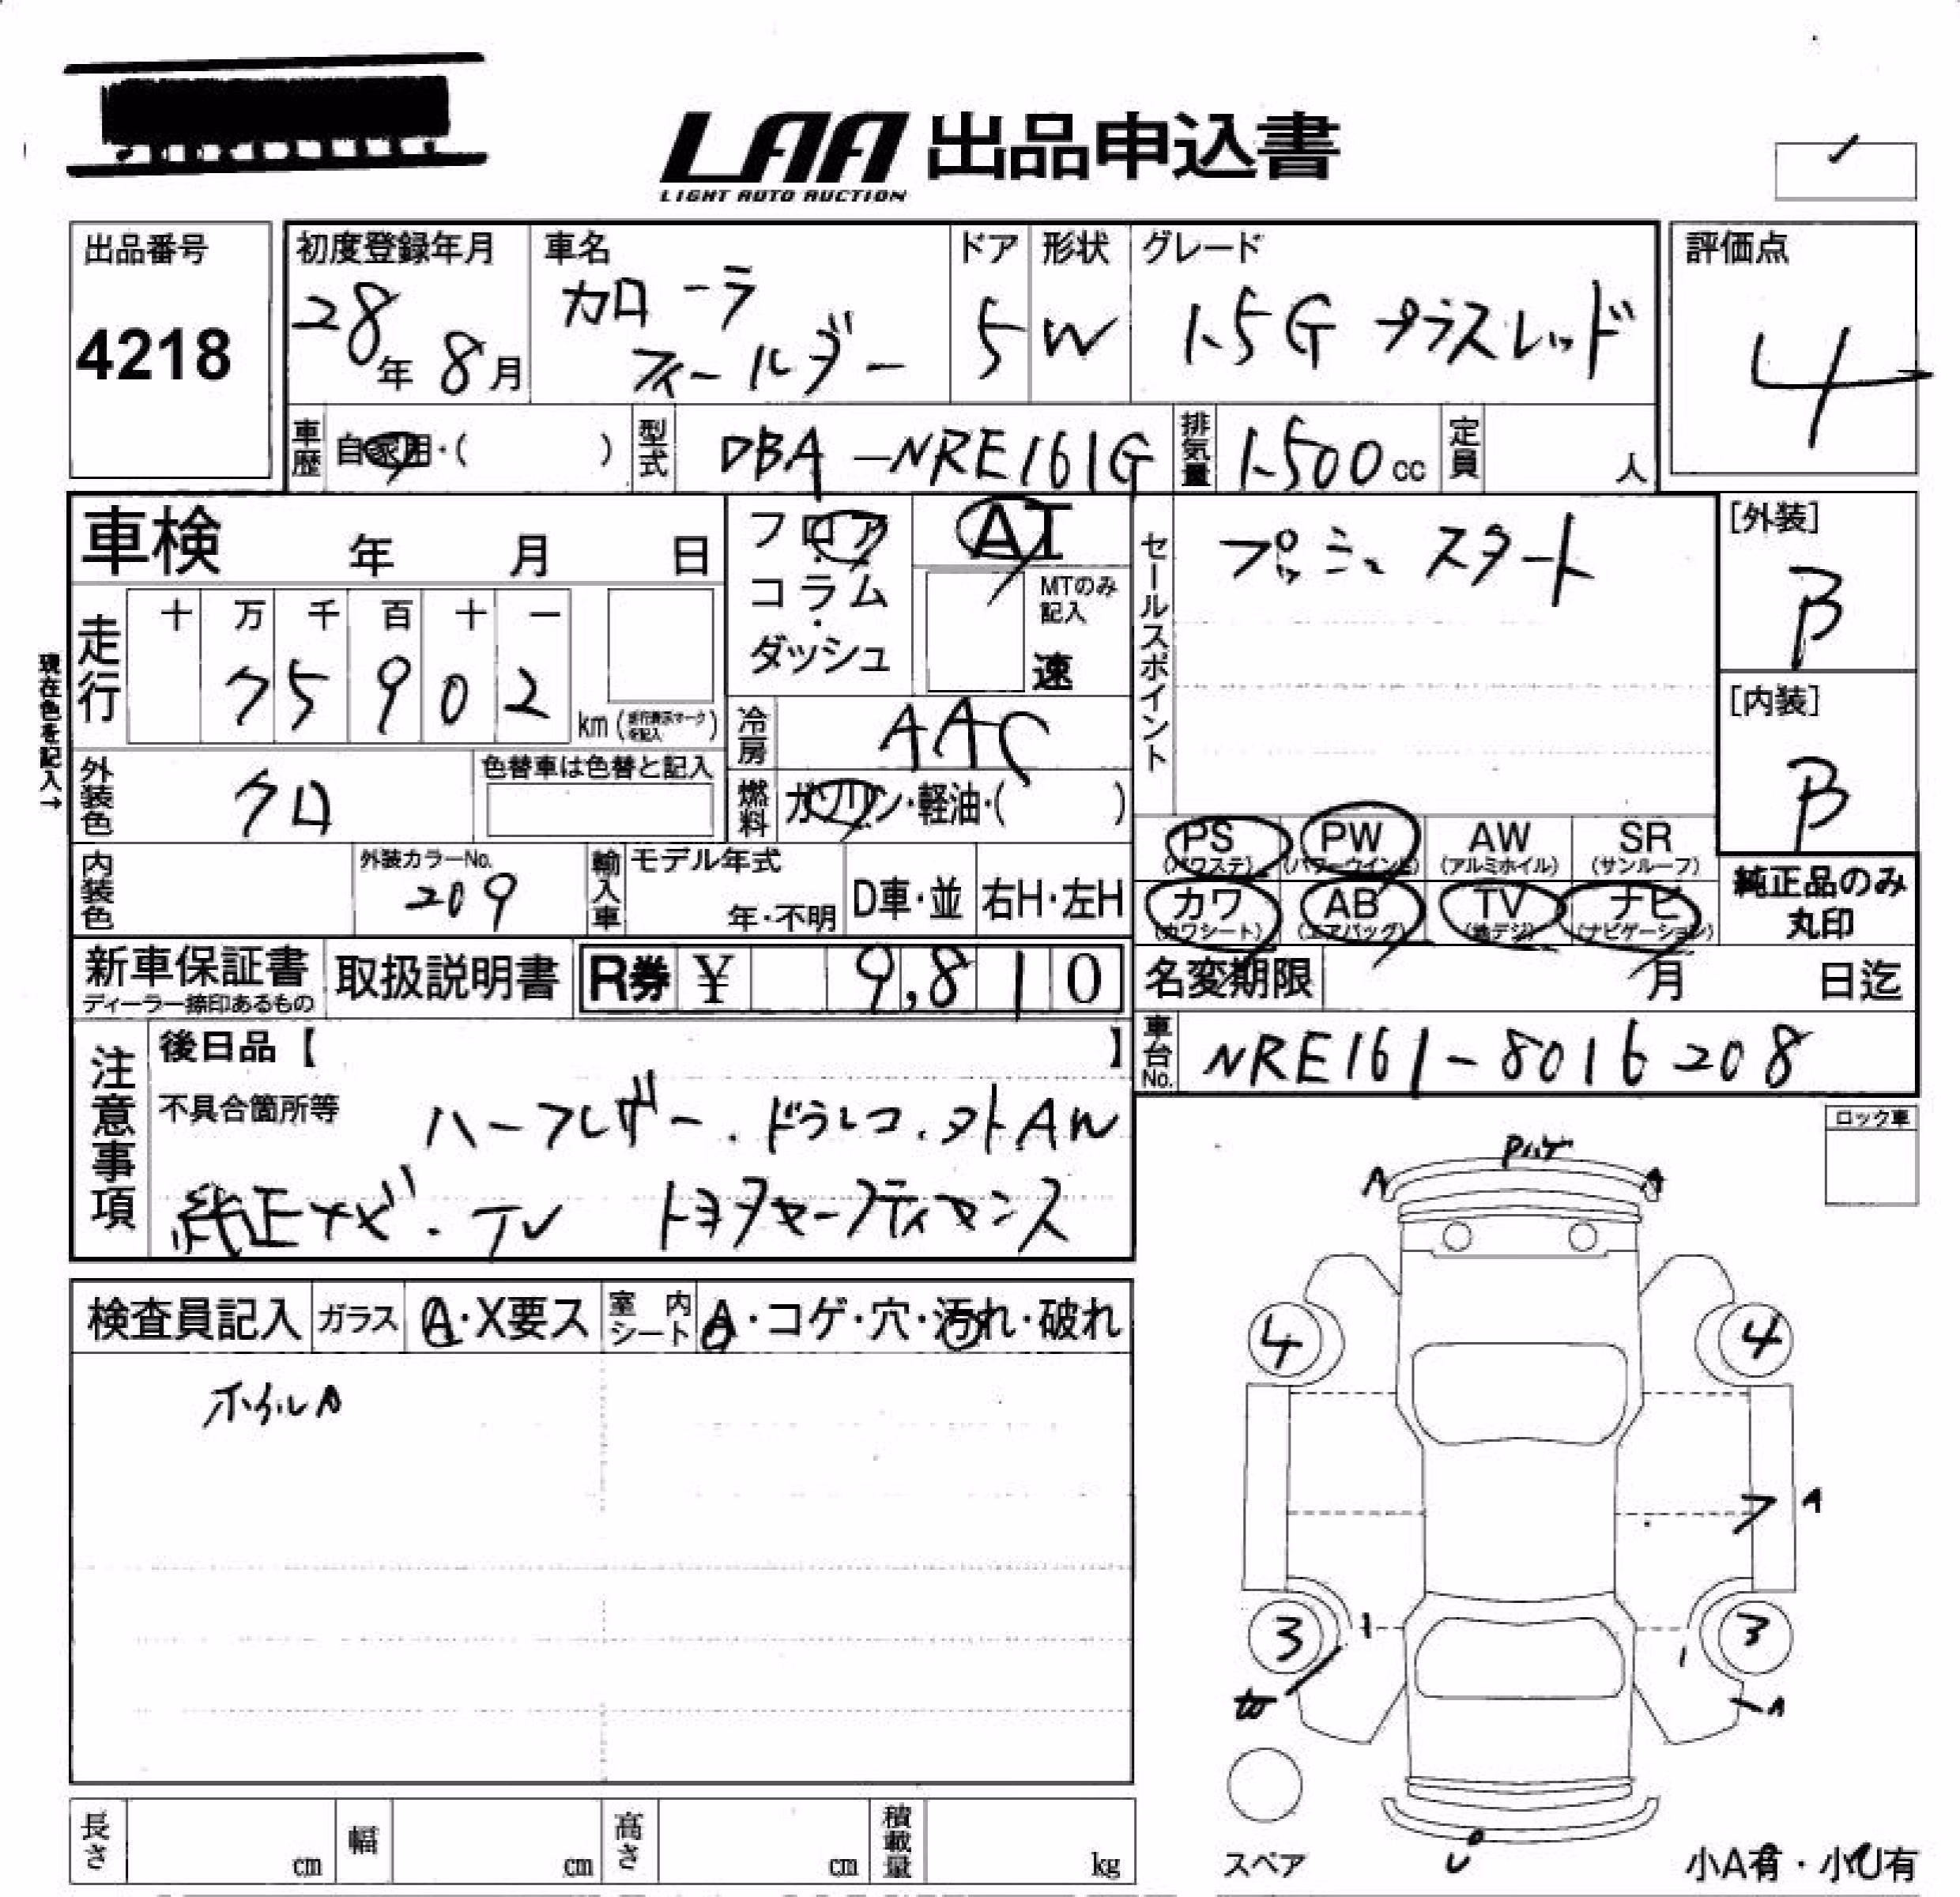 LAA 出品申込書
LIGHT AUTO AUCTION
出品番号
4218
初度登録年月
28年 8月
車名
カローラ
フィールダー
ドア
5
形状
W
グレード
1.5G プラスレッド
評価点
4
車歴
自家用・( )
型式
DBA-NRE161G
排気量
1.500cc
定員
人
車検 年 月 日
フロア
コラム
・
ダッシュ
AT
MTのみ
記入
速
セールスポイント
プッシュスタート
[外装]
B
[内装]
B
現在色を記入→
走行
十 万 千 百 十 一
7 5 9 0 2
km
冷房
AAC
外装色
クロ
色替車は色替と記入
燃料
ガソリン・軽油・( )
PS
(パワステ)
PW
(パワーウインド)
AW
(アルミホイル)
SR
(サンルーフ)
カワ
(カワシート)
AB
(エアバッグ)
TV
(地デジ)
ナビ
(ナビゲーション)
純正品のみ
丸印
内装色
外装カラーNo.
209
輸入車
モデル年式
年・不明
D車・並
右H・左H
新車保証書
ディーラー捺印あるもの
取扱説明書
R券 ¥ 9,810
名変期限 月 日迄
車台No.
NRE161-8016208
注意事項
後日品【 】
不具合箇所等
ハーフレザー.ドラレコ.ソトAW
純正ナビ.TV トヨタセーフティセンス
ロック車
検査員記入
ガラス
A・X要ス
室内シート
A・コゲ・穴・汚れ・破れ
ホイルA
A
A
4
4
フ A
3
3
A
スペア
長さ cm
幅 cm
高さ cm
積載量 kg
小A有・小U有